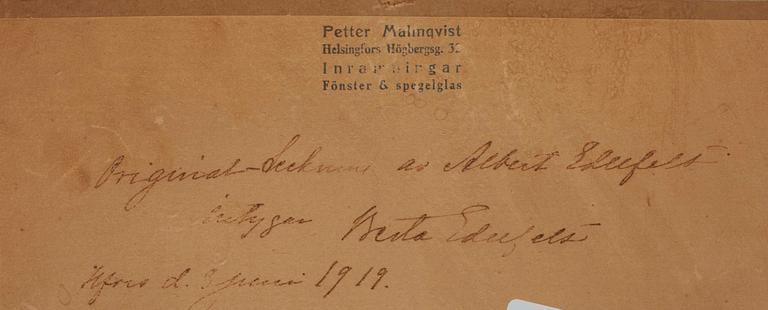 Petter Malmqvist
Helsingfors Högbergsg. 32
Inramningar
Fönster & spegelglas
Original-Teckning av Albert Edelfelt
intygar Berta Edelfelt
H:fors d. 3 juni 1919.